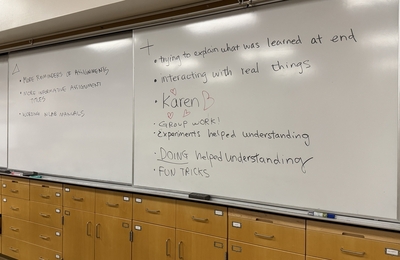 Δ
• MORE REMINDERS OF ASSIGNMENTS
• MORE INFORMATIVE ASSIGNMENT
TITLES
+
• trying to explain what was learned at end
• interacting with real things
• Karen
• GROUP WORK!
• Experiments helped understanding
• DOING helped understanding
• FUN TRICKS